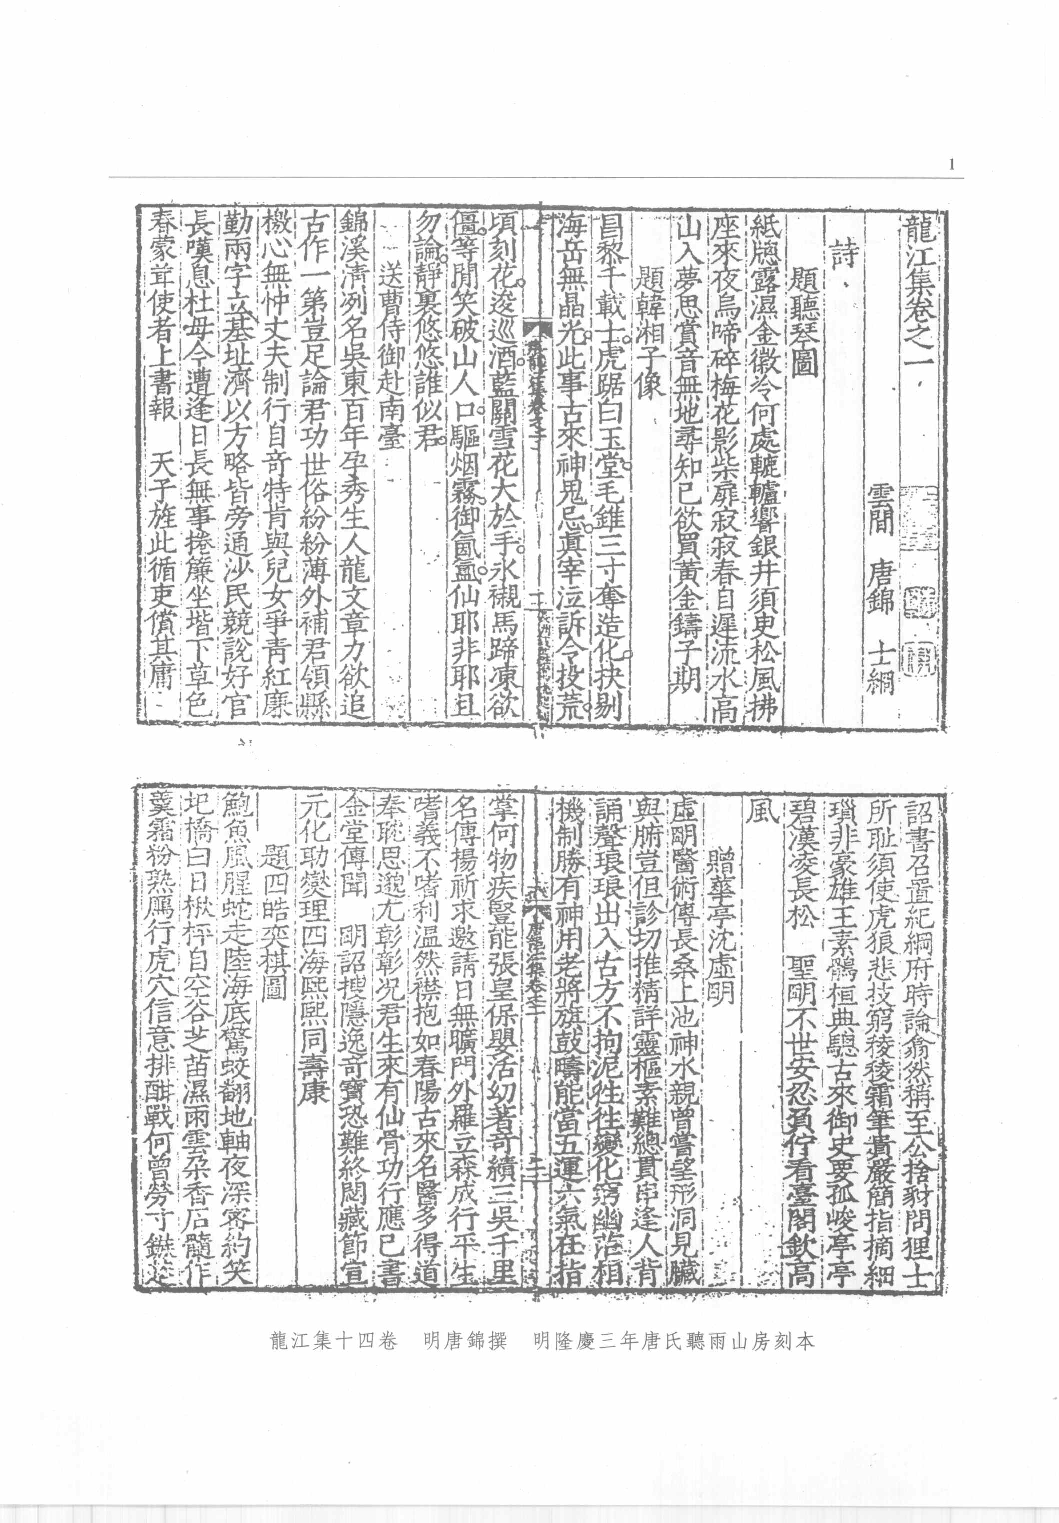 1
龍江集卷之一
雲間 唐錦 士綱
詩
題聽琴圖
紙牕露濕金徽冷何處轆轤響銀井須史松風拂
座來夜烏啼碎梅花影柴扉寂寂春自遲流水高
山入夢思賞音無地尋知已欲買黃金鑄子期
題韓湘子像
昌黎千載士虎踞曰玉堂毛錐三寸奪造化抉剔
海岳無晶光此事古來神鬼忌眞宰泣訴令投荒
頃刻花逡巡酒藍關雪花大於手氷襯馬蹄凍欲
僵等閒笑破山人口驅烟霧御氤氳仙耶非耶且
勿論靜裏悠悠誰似君
送曹侍御赴南臺
錦溪淸冽名吳東百年孕秀生人龍文章力欲追
古作一第豈足論君功世俗紛紛薄外補君領縣
檄心無忡丈夫制行自奇特肯與兒女爭靑紅廉
勤兩字立基址濟以方略皆旁通沙民競說好官
長嘆息杜母今遭逢日長無事捲簾坐堦下草色
春蒙茸使者上書報 天子旌此循吏償其庸
詔書召置紀綱府時論翕然稱至公捨豺問狸士
所耻須使虎狼悲技窮稜稜霜筆貴嚴簡指摘細
瑣非豪雄王素鶻桓典驄古來御史要孤峻亭亭
碧漢凌長松 聖明不世安忍負佇看臺閣欽高
風
贈華亭沈虛明
虛明醫術傳長桑上池神水親曾嘗望形洞見臟
與腑豈但診切推精詳靈樞素難總貫串逢人背
誦聲琅琅出入古方不拘泥徃徃變化窮幽茫相
機制勝有神用老將旗鼓疇能當五運六氣在指
掌何物疾豎能張皇保嬰活幼著奇績三吳千里
名傳揚祈求邀請日無曠門外羅立森成行平生
嗜義不嗜利溫然襟抱如春陽古來名醫多得道
奉璇思邈尤彰彰况君生來有仙骨功行應已書
金堂傳聞 明詔搜隱逸奇寶恐難終閟藏節宣
元化助燮理四海熙熙同壽康
題四皓奕棋圖
鮑魚風腥蛇走陸海底驚蛟翻地軸夜深密約笑
圯橋白日楸枰自空谷芝苗濕雨雲朵香石髓作
羹霜粉熟鴈行虎穴信意排酣戰何曾勞寸鏃
龍江集十四卷 明唐錦撰 明隆慶三年唐氏聽雨山房刻本